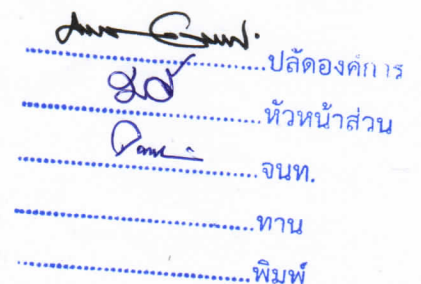 ....................ปลัดองค์การ
....................หัวหน้าส่วน
....................จนท.
....................ทาน
....................พิมพ์